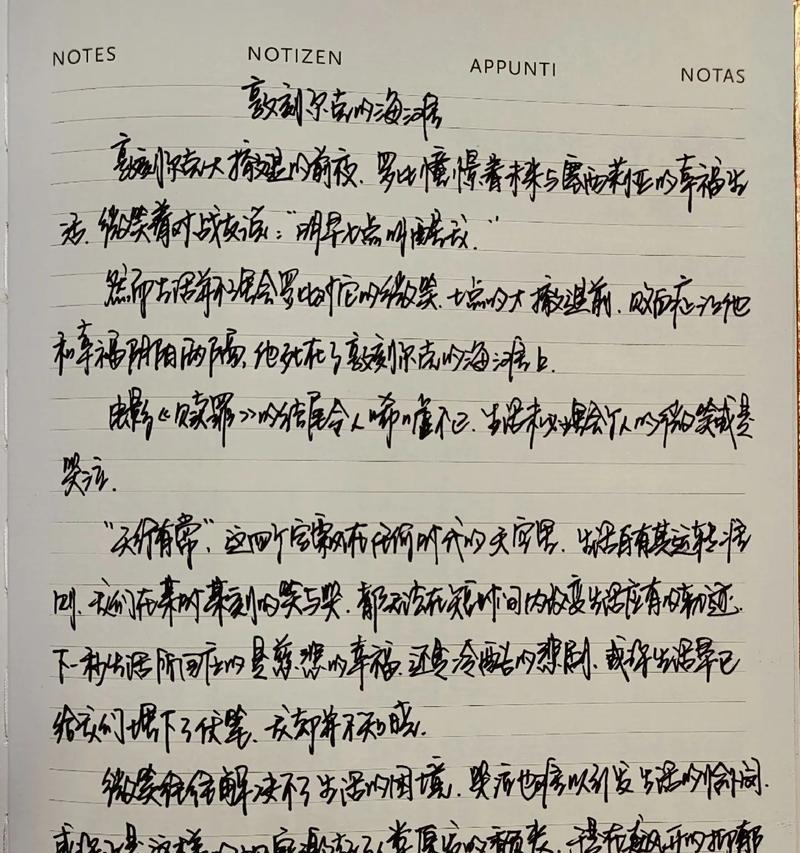 NOTES NOTIZEN APPUNTI NOTAS
敦刻尔克的海滩
敦刻尔克大撤退的前夜，罗比憧憬着未来与塞西莉亚的幸福生
活，微笑着对战友说：“明早七点叫醒我。”
然而生活并不理会罗比对它的微笑，七点的大撤退前，败血症让他
和幸福阴阳两隔，他死在了敦刻尔克的海滩上。
电影《赎罪》的结尾令人唏嘘不已，生活未必理会个人的微笑或是
哭泣。
“天行有常”，这四个字飘在任何时代的天空里，生活自有其运转准
则，我们在某时某刻的笑与哭，都无法在短时间内改变生活应有的轨迹。
下一秒生活所回应的是慈悲的幸福，还是冷酷的悲剧，或许生活早已
给我们埋下了伏笔，我却并不知晓。
微笑往往解决不了生活的困境，哭泣也难以引发生活的怜悯。
或许正是这样